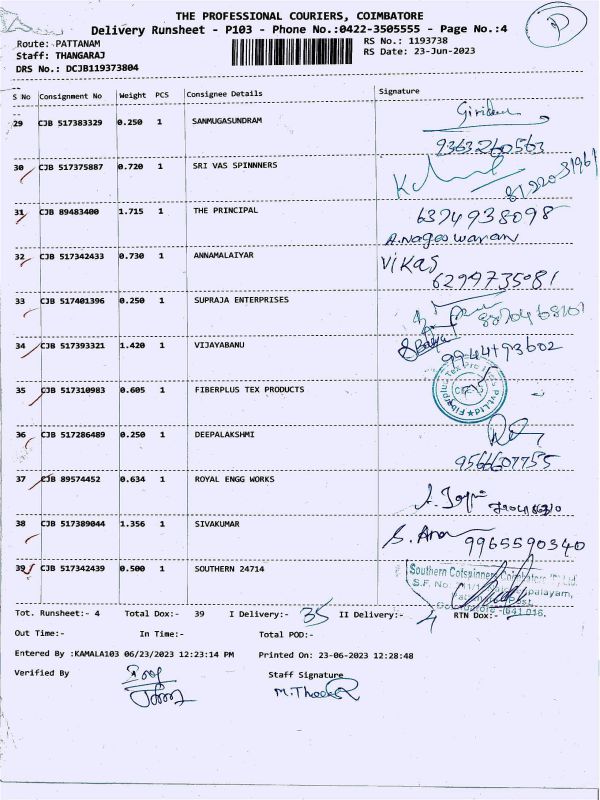 THE PROFESSIONAL COURIERS, COIMBATORE
Delivery Runsheet - P103 - Phone No.:0422-3505555 - Page No.:4
P
Route: PATTANAM
RS No.: 1193738
Staff: THANGARAJ
RS Date: 23-Jun-2023
DRS No.: DCJB119373804
S No Consignment No Weight PCS Consignee Details Signature
29 CJB 517383329 0.250 1 SANMUGASUNDRAM
9363260563
30 CJB 517375887 0.720 1 SRI VAS SPINNNERS
31 CJB 89483400 1.715 1 THE PRINCIPAL 6374938098
A.Nageswaran
32 CJB 517342433 0.730 1 ANNAMALAIYAR Vikas
6299735081
33 CJB 517401396 0.250 1 SUPRAJA ENTERPRISES
34 CJB 517393321 1.420 1 VIJAYABANU
9944793602
35 CJB 517310983 0.605 1 FIBERPLUS TEX PRODUCTS
36 CJB 517286489 0.250 1 DEEPALAKSHMI
9566607755
37 CJB 89574452 0.634 1 ROYAL ENGG WORKS
38 CJB 517389044 1.356 1 SIVAKUMAR
9965590340
39 CJB 517342439 0.500 1 SOUTHERN 24714 Southern Cotspinners Coimbatore (P) Ltd.
S.F. No
Tot. Runsheet:- 4 Total Dox:- 39 I Delivery:- 35 II Delivery:- 4 RTN Dox:-
Out Time:- In Time:- Total POD:-
Entered By :KAMALA103 06/23/2023 12:23:14 PM Printed On: 23-06-2023 12:28:48
Verified By Staff Signature